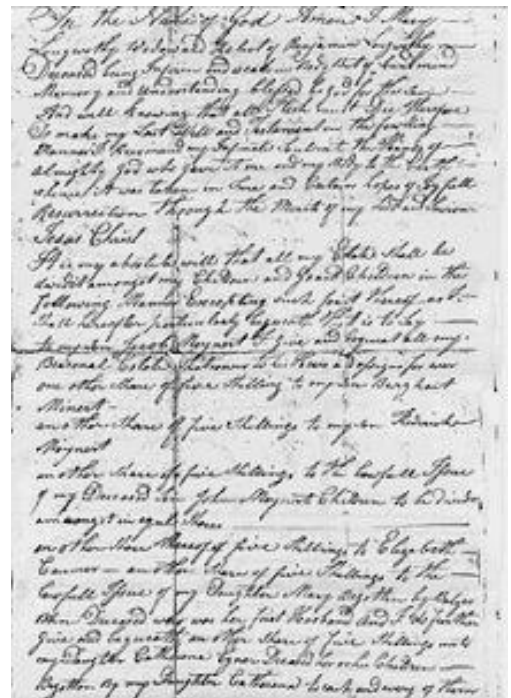 In the Name of God Amen I Mary
Longworthy Widow and Relict of Benjamin Longworthy
Deceased being Infirm and weak in Body but of sound mind
Memory and Understanding blessed be god for the same
And well knowing that all flesh must Die therefore
Do make my Last Will and Testament in the following
Manner I Recommend my Immortal Soul into the Hands of
Almighty God who gave it me and my Body to the Dust of
whence it was taken in Sure and Certain hopes of Joyfull
Resurrection through the Merits of my Lord and Saviour
Jesus Christ
It is my absolute will that all my Estate Shall be
devidit amongst my Children and Grand Children in the
following Manner Excepting such Part thereof as I
Shall hereafter particularly bequeath that is to Say
to my son Jacob Moynert I Give and bequeat all my
Personal Estate to his Heirs and assigns for ever
one other Share of five Shilling to my son Burghart
Minert
an other Share of five Shillings to my son Fredrick
Moynert
an other Share of five Shillings to the lawfull Issue
of my Deceased son John Moynert Children to be divided
amongst in equal Shares
an other Share thereof of five Shillings to Elizabeth
an other Share of five Shillings to the
lawfull Issue of my Daughter Mary Begotten by
Deceased who was her first Husband And I do further
Give and bequeath an other Share of five Shillings unto
my Daughter Catherine Deceased Children
Begotten by my Daughter Catherina to each and every of them